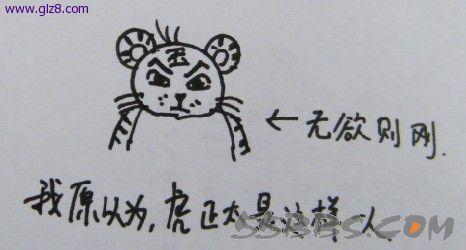 www.glz8.com
王
← 无欲则刚.
我原以为,虎正太是这样
55BBS.COM